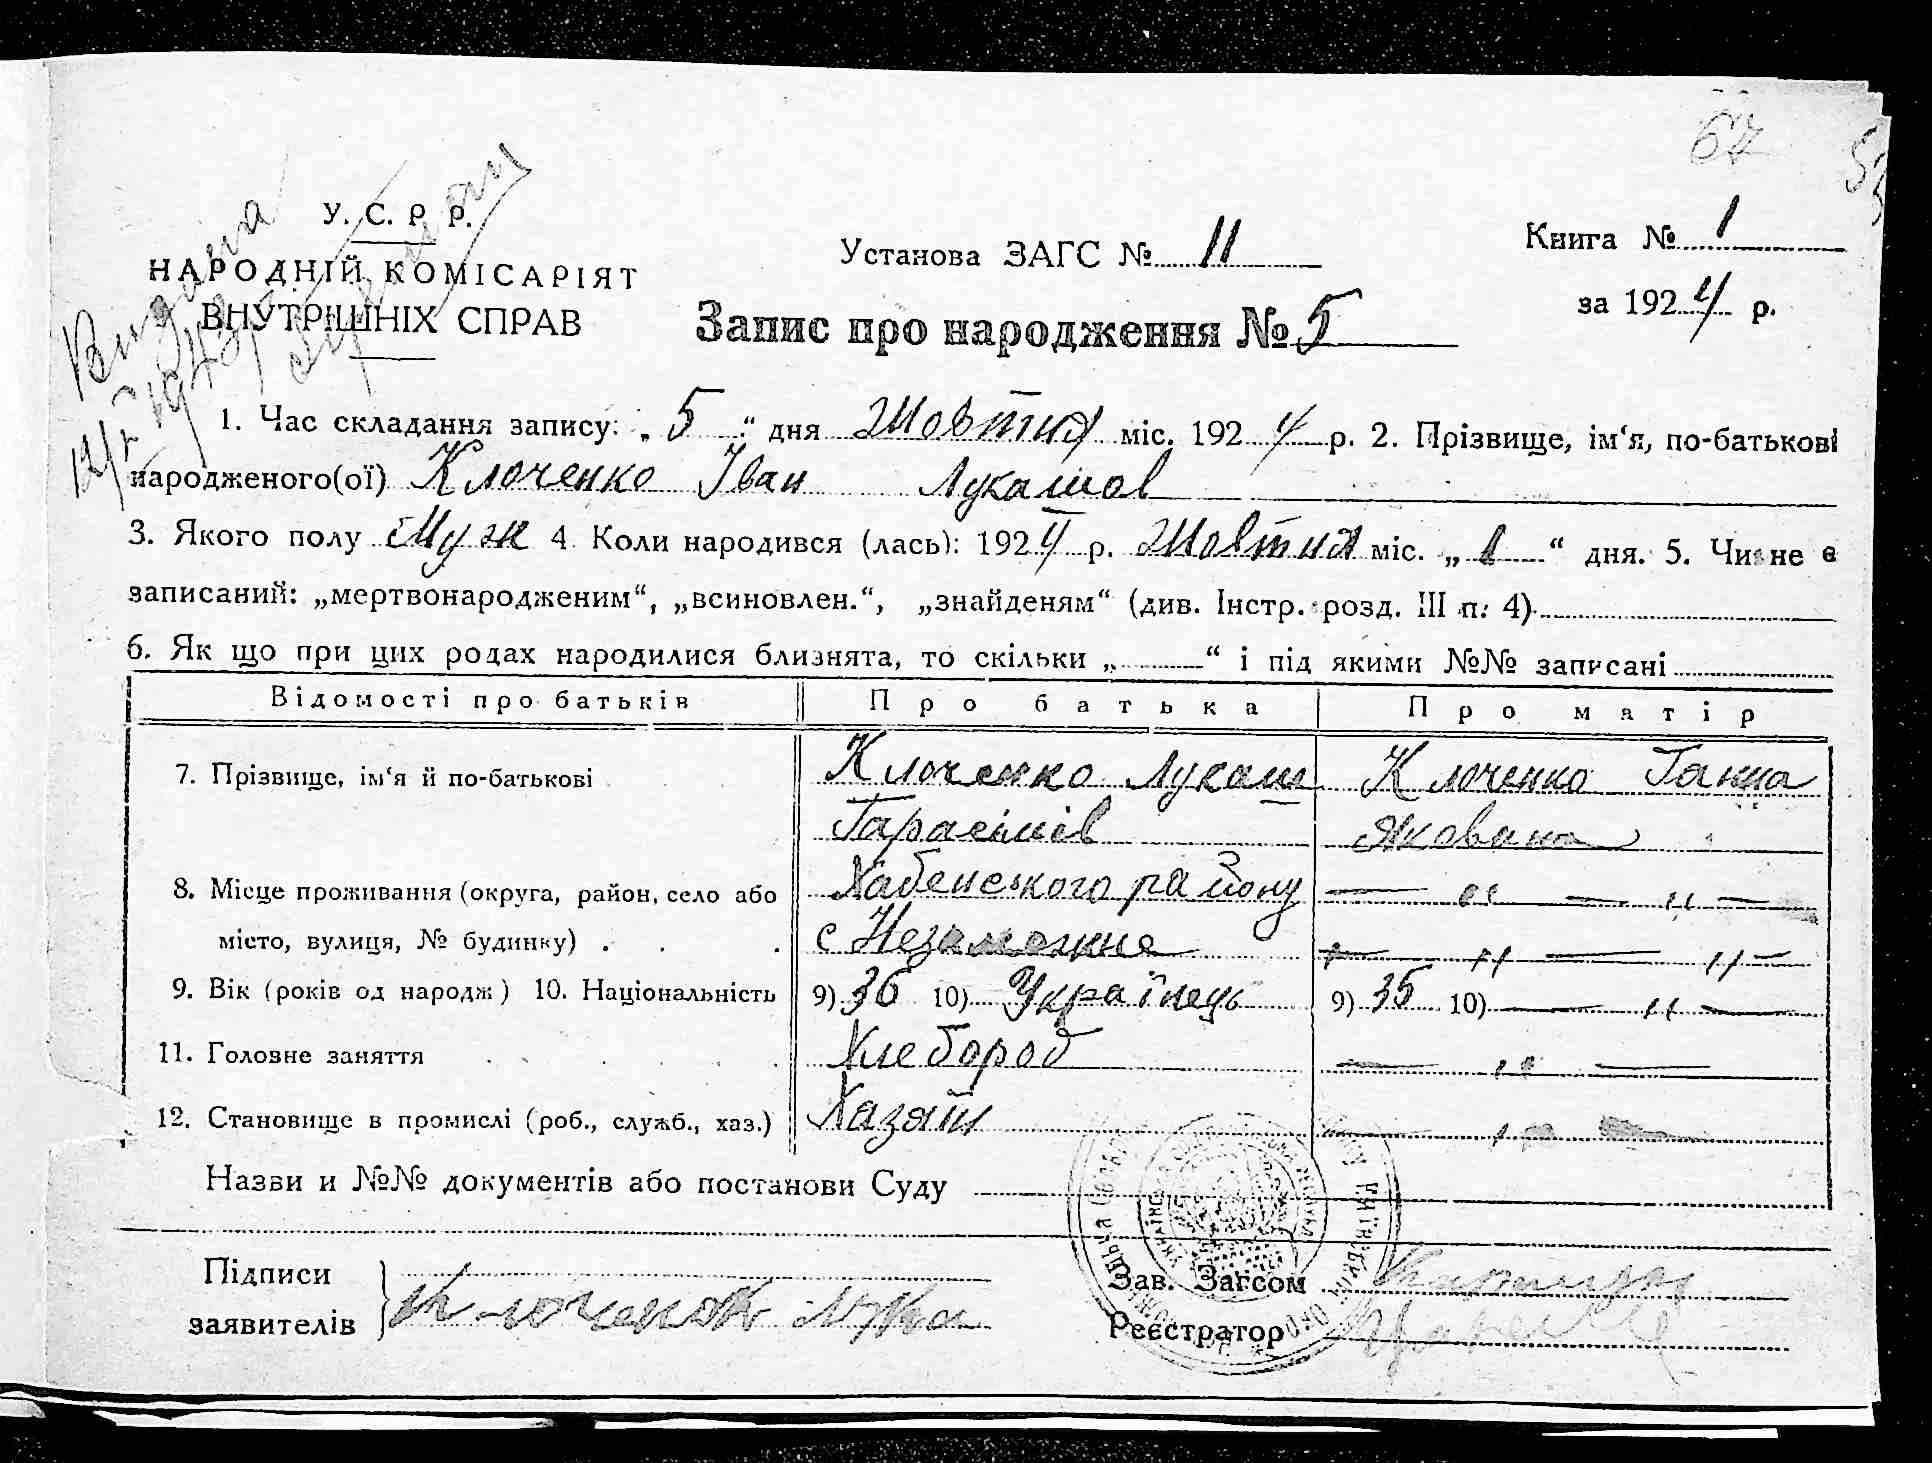 67
53
Видана
У. С. Р Р.
НАРОДНІЙ КОМІСАРІЯТ
ВНУТРІШНІХ СПРАВ
Установа ЗАГС № 11
Книга № 1
за 1924 р.
Запис про народження № 5
1. Час складання запису: „ 5 “ дня Жовтня міс. 1924 р. 2. Прізвище, ім‘я, по-батькові
народженого(ої) Ключенко Іван Лукашов
3. Якого полу Муж 4 Коли народився (лась): 1924 р. Жовтня міс. „ 1 “ дня. 5. Чи не є
записаний: „мертвонародженим“, „всиновлен.“, „знайденям“ (див. Інстр. розд. III п. 4)
6. Як що при цих родах народилися близнята, то скільки „ “ і під якими №№ записані
Відомості про батьків Про батька Про матір
7. Прізвище, ім‘я й по-батькові Ключенко Лукаш Ключенко Ганна
Гарасімів Яковина
8. Місце проживання (округа, район, село або Хабенського району — „ — „ —
місто, вулиця, № будинку) . . . с Незаможне — „ — „ —
9. Вік (років од народж) 10. Національність 9) 36 10) Українець 9) 35 10) — „ —
11. Головне заняття Хлебороб — „ —
12. Становище в промислі (роб., служб., хаз.) Хазяїн — „ —
Назви и №№ документів або постанови Суду
Підписи
заявителів Ключенок Лука
Зав. Загсом
Реєстратор